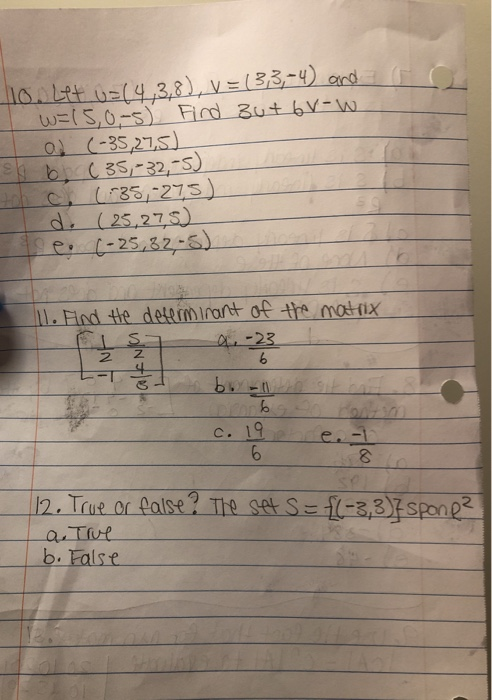 10. Let u=(4,3,8), v=(3,3,-4) and
w=(5,0,-5). Find 3u+6v-w
a) (-35,27,5)
b, (35,-32,-5)
c, (-35,-27,5)
d. (25,27,5)
e. (-25,32,-5)
11. Find the determinant of the matrix
[1/2 5/2
-1 4/3]
a. -23/6
b. -11/6
c. 19/6 e. -1/8
12. True or false? The set S = {(-3,3)} span R²
a. True
b. False